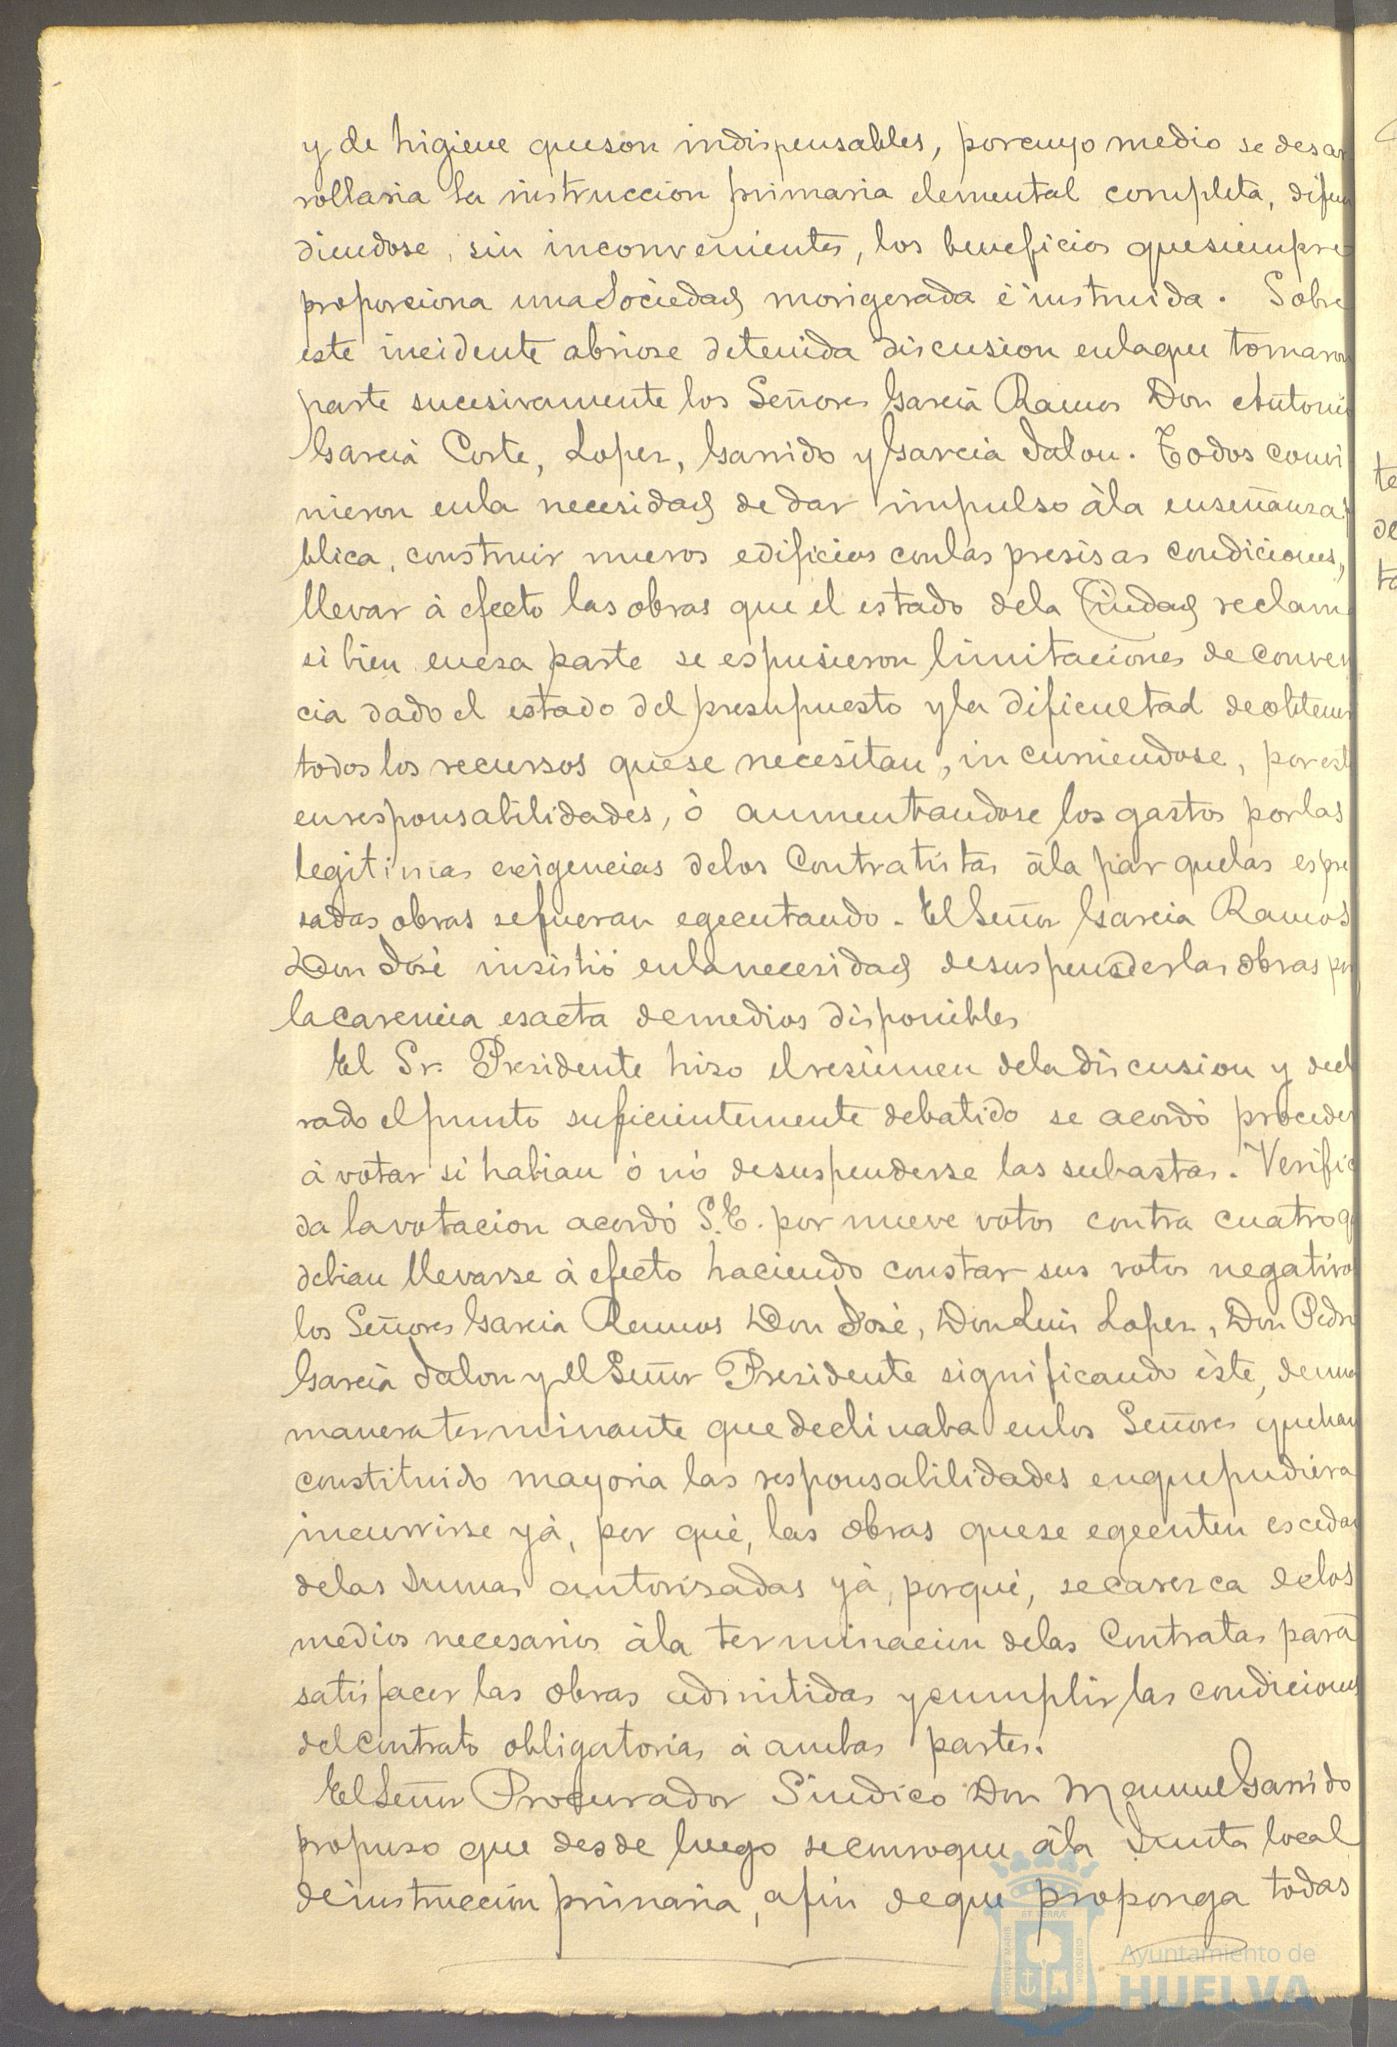 y de higiene que son indispensables, por cuyo medio se desar
rollaria la instruccion primaria elemental completa, difun
diendose, sin inconvenientes, los beneficios que siempre
proporciona una Sociedad morigerada é instruida. Sobre
este incidente abriose detenida discusion en la que tomaron
parte sucesivamente los Señores Garcia Ramos Don Antonio
Garcia Corte, Lopez, Garrido y Garcia Jalon. Todos convi
nieron en la necesidad de dar impulso à la enseñanza
blica, construir nuevos edificios con las presisas condiciones,
llevar à efecto las obras que el estado de la Ciudad reclam
si bien en esa parte se espusieron limitaciones de conven
cia dado el estado del presupuesto y la dificultad de obtener
todos los recursos que se necesitan, incurriendose, por est
en responsabilidades, ò aumentandose los gastos por las
legitimas exigencias de los Contratistas à la par que las espre
sadas obras se fueran egecutando. El Señor Garcia Ramos
Don José insistió en la necesidad de suspender las obras por
la carencia esacta de medios disponibles
El Sr. Presidente hizo el resúmen de la discusion y decl
rado el punto suficientemente debatido se acordó proceder
à votar si habian ó nó de suspenderse las subastas. Verific
da la votacion acordó S.E. por nueve votos contra cuatro q
debian llevarse à efecto haciendo constar sus votos negativos
los Señores Garcia Ramos Don José, Don Luis Lopez, Don Pedro
Garcia Jalon y el Señor Presidente significando éste, de una
manera terminante que declinaba en los Señores que han
constituido mayoria las responsabilidades en que pudiera
incurrirse yà, por qué, las obras que se egecuten escedan
de las sumas autorisadas yà, porqué, se caresca de los
medios necesarios à la terminacion de las Contratas para
satisfacer las obras admitidas y cumplir las condiciones
del contrato obligatorias à ambas partes.
El Señor Procurador Síndico Don Manuel Garrido
propuso que desde luego se convoque à la Junta local
de instruccion primaria, a fin de que proponga todas
te
de
ta
Ayuntamiento de
HUELVA